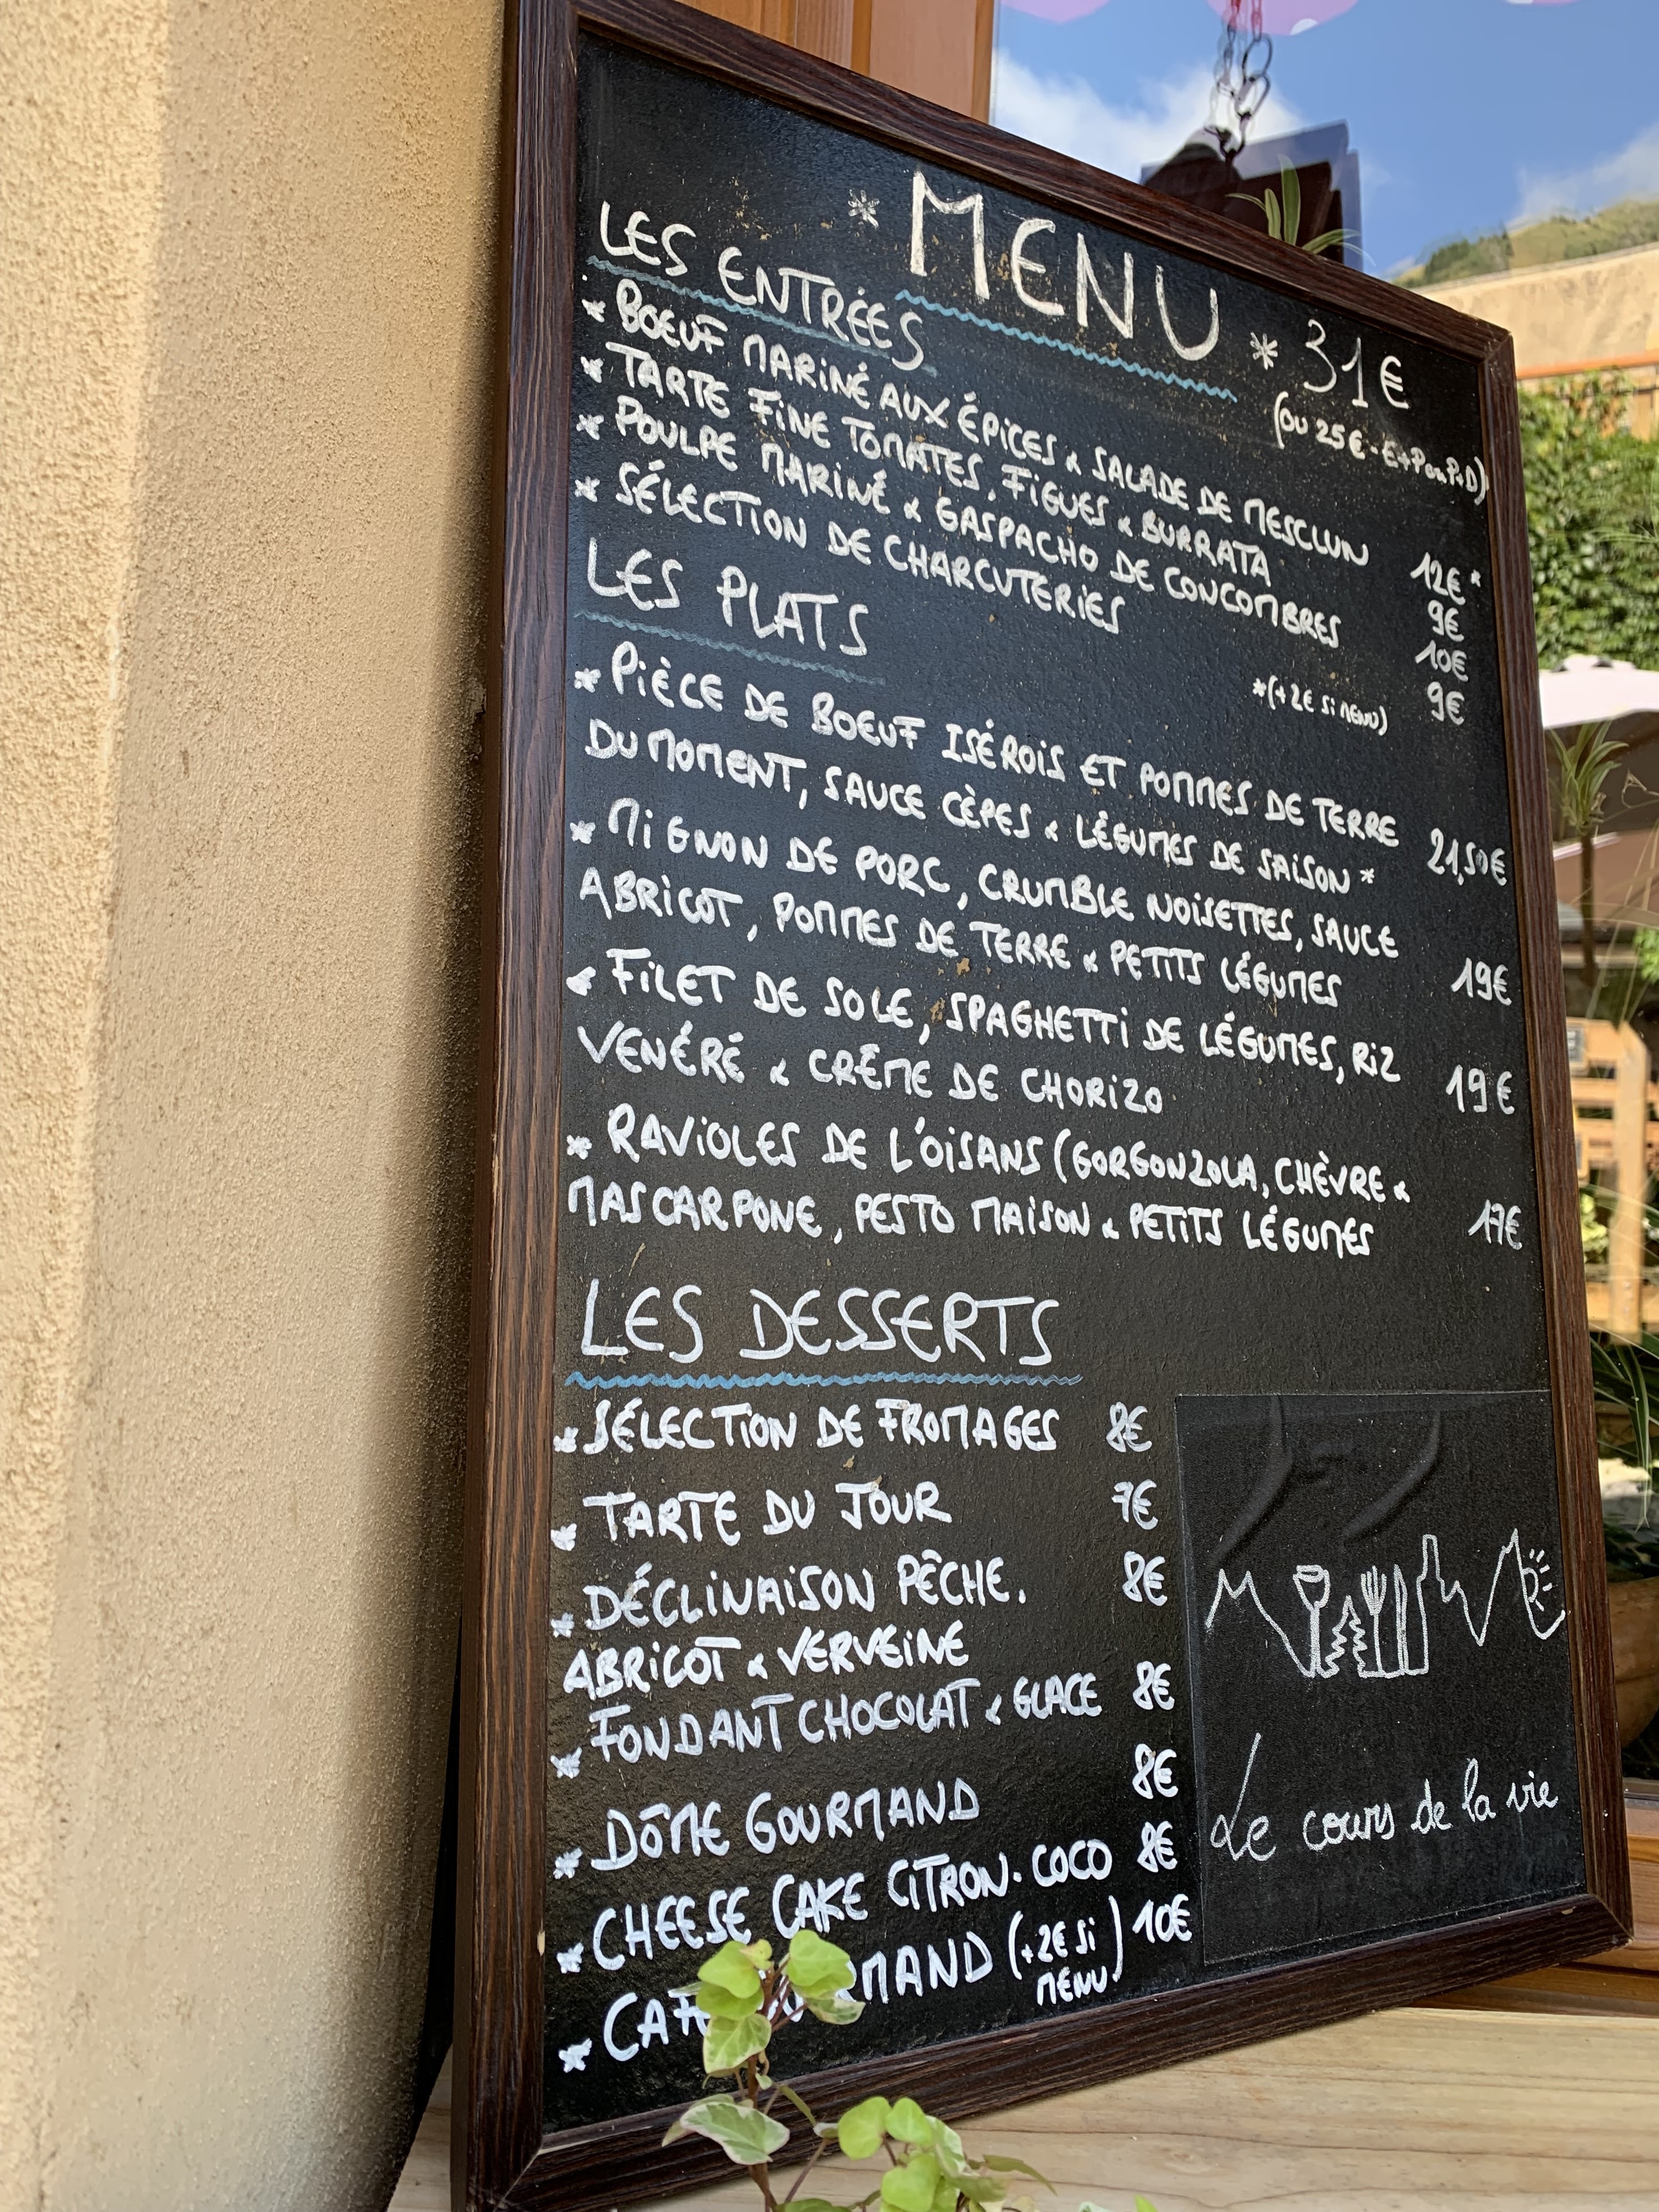 * MENU * 31€
(OU 25€ - E+P ou P+D)
LES ENTRÉES
* BOEUF MARINÉ AUX ÉPICES & SALADE DE MESCLUN 12€*
* TARTE FINE TOMATES, FIGUES & BURRATA 9€
* POULPE MARINÉ & GASPACHO DE CONCOMBRES 10€
* SÉLECTION DE CHARCUTERIES 9€
*(+2€ Si MENU)
LES PLATS
* PIÈCE DE BOEUF ISÉROIS ET POMMES DE TERRE
DU MOMENT, SAUCE CÈPES & LÉGUMES DE SAISON * 21,50€
* MIGNON DE PORC, CRUMBLE NOISETTES, SAUCE
ABRICOT, POMMES DE TERRE & PETITS LÉGUMES 19€
* FILET DE SOLE, SPAGHETTI DE LÉGUMES, RIZ
VENÉRÉ & CRÊME DE CHORIZO 19€
* RAVIOLES DE L'OISANS (GORGONZOLA, CHÈVRE &
MASCARPONE, PESTO MAISON & PETITS LÉGUMES 17€
LES DESSERTS
* SÉLECTION DE FROMAGES 8€
* TARTE DU JOUR 7€
* DÉCLINAISON PÊCHE. 8€
ABRICOT & VERVEINE
* FONDANT CHOCOLAT & GLACE 8€
* DÔME GOURMAND 8€
* CHEESE CAKE CITRON. COCO 8€
* (+2€ Si MENU) 10€
Le cours de la vie